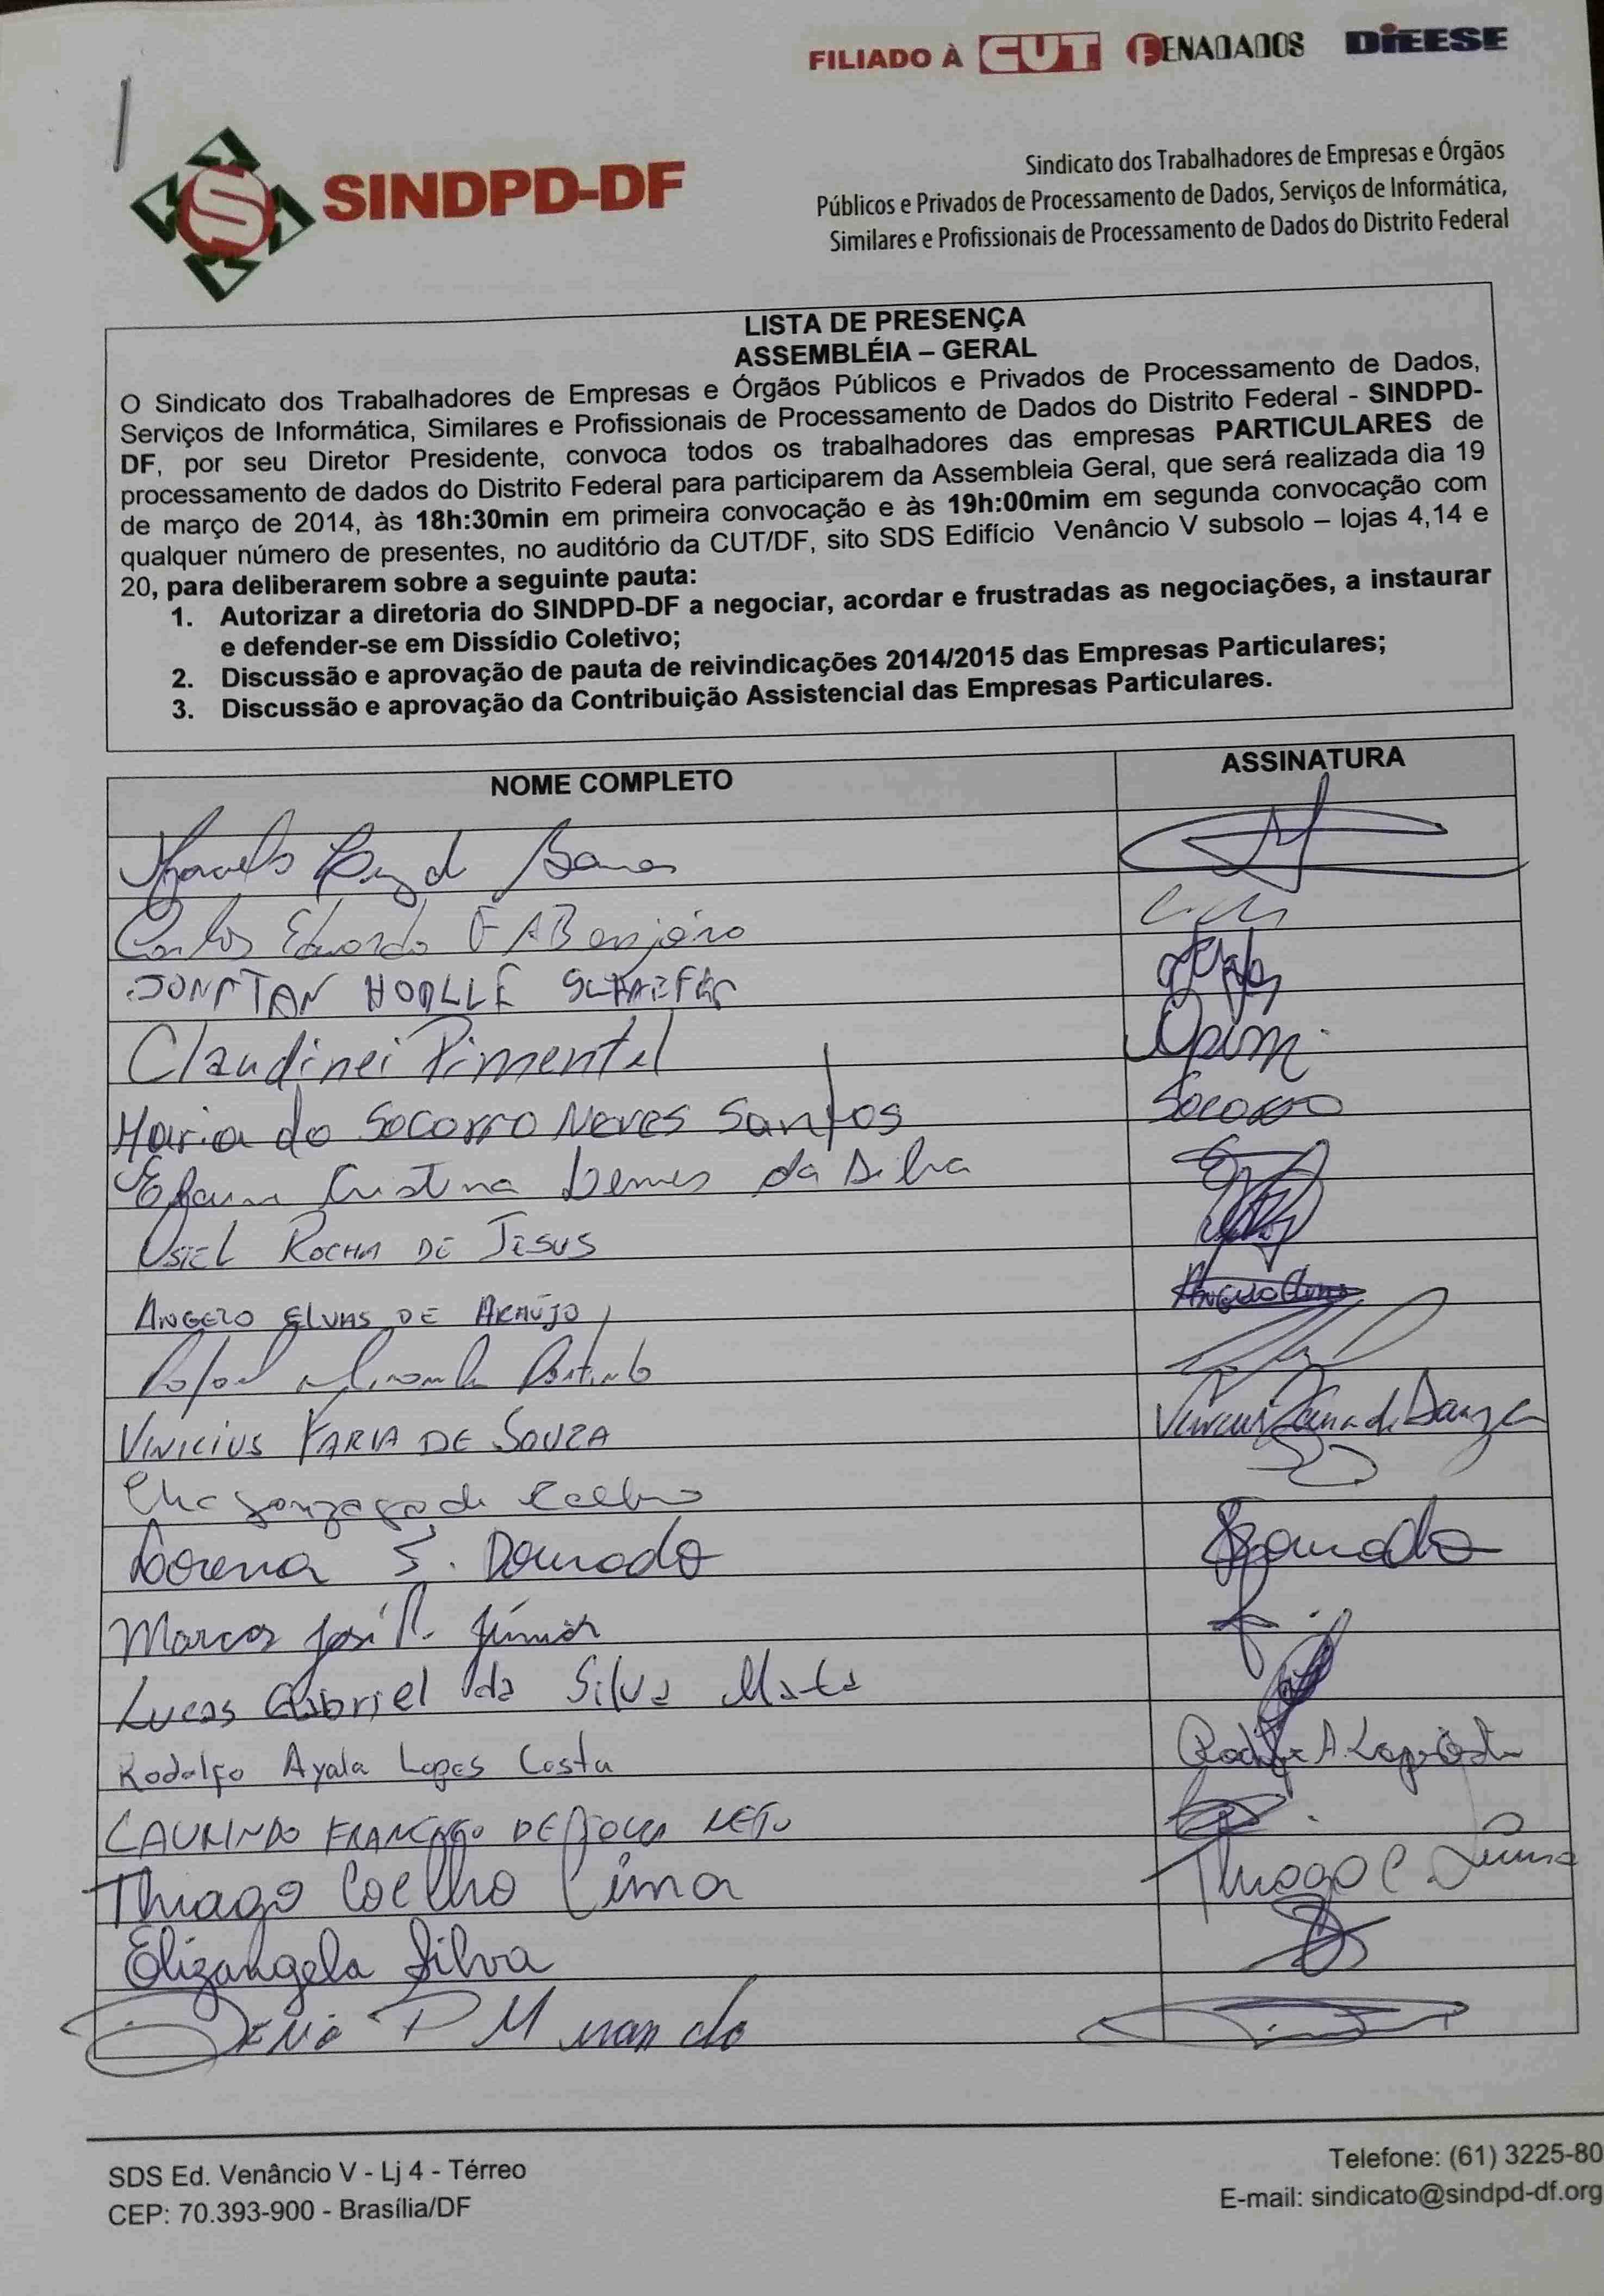 FILIADO À CUT FENADADOS DIEESE
SINDPD-DF
Sindicato dos Trabalhadores de Empresas e Órgãos
Públicos e Privados de Processamento de Dados, Serviços de Informática,
Similares e Profissionais de Processamento de Dados do Distrito Federal
LISTA DE PRESENÇA
ASSEMBLÉIA – GERAL
O Sindicato dos Trabalhadores de Empresas e Órgãos Públicos e Privados de Processamento de Dados,
Serviços de Informática, Similares e Profissionais de Processamento de Dados do Distrito Federal - SINDPD-
DF, por seu Diretor Presidente, convoca todos os trabalhadores das empresas PARTICULARES de
processamento de dados do Distrito Federal para participarem da Assembleia Geral, que será realizada dia 19
de março de 2014, às 18h:30min em primeira convocação e às 19h:00mim em segunda convocação com
qualquer número de presentes, no auditório da CUT/DF, sito SDS Edifício Venâncio V subsolo – lojas 4,14 e
20, para deliberarem sobre a seguinte pauta:
1. Autorizar a diretoria do SINDPD-DF a negociar, acordar e frustradas as negociações, a instaurar
e defender-se em Dissídio Coletivo;
2. Discussão e aprovação de pauta de reivindicações 2014/2015 das Empresas Particulares;
3. Discussão e aprovação da Contribuição Assistencial das Empresas Particulares.
NOME COMPLETO ASSINATURA
Carlos Eduardo
Claudinei Pimentel
Maria do Socorro Neves Santos Socorro
Cristina Lemes da Silva
USIEL ROCHA DE JESUS
ANGELO ELVAS DE ARAÚJO
Rafael
VINICIUS FARIA DE SOUZA Vinicius Faria de Souza
Lorena S. Dourado Dourado
Marcos José R. Júnior
Lucas Gabriel da Silva Mata
Rodolfo Ayala Lopes Costa Rodolfo A. Lopes Costa
LAURINDO FRANCISCO NETO
Thiago Coelho Lima Thiago C Lima
Elizangela Silva
SDS Ed. Venâncio V - Lj 4 - Térreo
CEP: 70.393-900 - Brasília/DF
Telefone: (61) 3225-80
E-mail: sindicato@sindpd-df.org